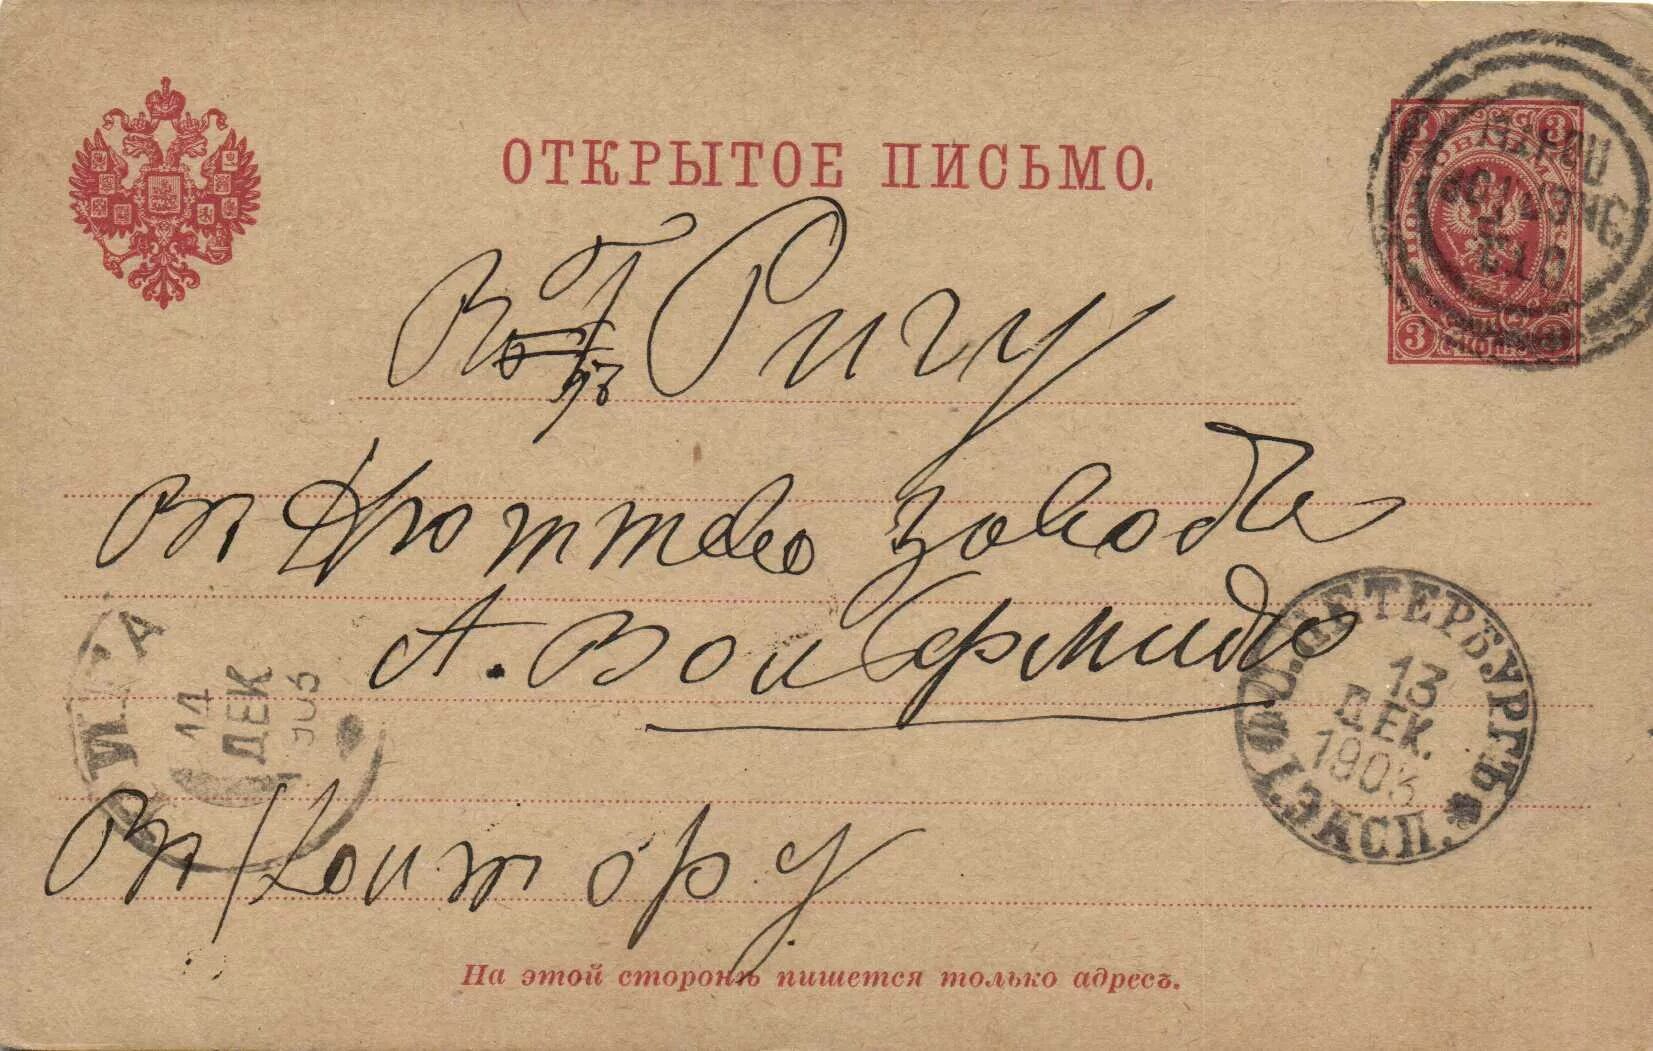 ОТКРЫТОЕ ПИСЬМО.
3 3
3 3
Въ г. Ригу
въ
завода
А. Вольфшмидъ
Въ Контору
РИГА
14
ДЕК
903
С. ПЕТЕРБУРГЪ
13
ДЕК.
1903
1. ЭКСП.
На этой сторонѣ пишется только адресъ.